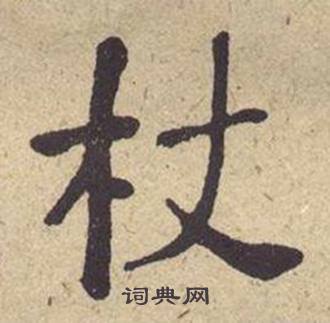 杖
词典网